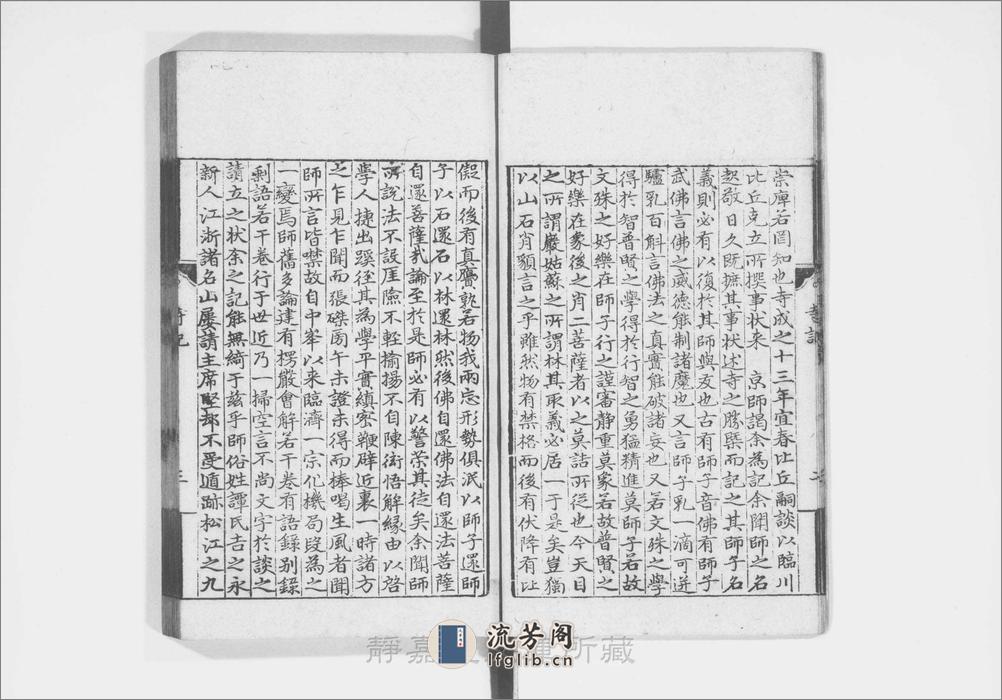 崇庳若罔知也寺成之十三年宜春比丘嗣談以臨川
比丘克立所撰事状来　京師謁余為記余聞師之名
契敬日久既摭其事状述寺之勝槩而記之其師子名
義則必有以復於其師與友也古有師子音佛有師子
武佛言佛之威德能制諸魔也又言師子乳一滴可迸
驢乳百斛言佛法之真實能破諸妄也又若文殊之學
得於智普賢之學得於行智之勇猛精進莫師子若故
文殊之好樂在師子行之謹審静重莫象若故普賢之
好樂在象後之肖二菩薩者以之莫詰所従也今天目
之所謂巖姑蘇之所謂林其取義必居一于是矣豈獨
以山石肖貌言之乎雖然物有禁格而後有伏降有比
假而後有真贋孰若物我兩忘形勢俱泯以師子還師
子以石還石以林還林然後佛自還佛法自還法菩薩
自還菩薩我論至於是師必有以警荣其徒矣余聞師
所說法不設厓險不輕揄揚不自陳衒悟解緣由以啓
學人捷出蹊徑其為學平實縝密鞭辟近裏一時諸方
之乍見乍聞而張磔鬲午未證未得而棒喝生風者聞
師所言皆禁故自中峯以来臨濟一宗化機局段為之
一變焉師舊多論建有楞嚴會解若干卷有語録别録
剩語若干卷行于世近乃一掃空言不尚文字於談之
請立之状柰之記能無綺于兹乎師俗姓譚氏吉之永
新人江浙諸名山屢請主席堅却不受遁跡松江之九
静嘉
所藏
流芳阁
lfglib.cn